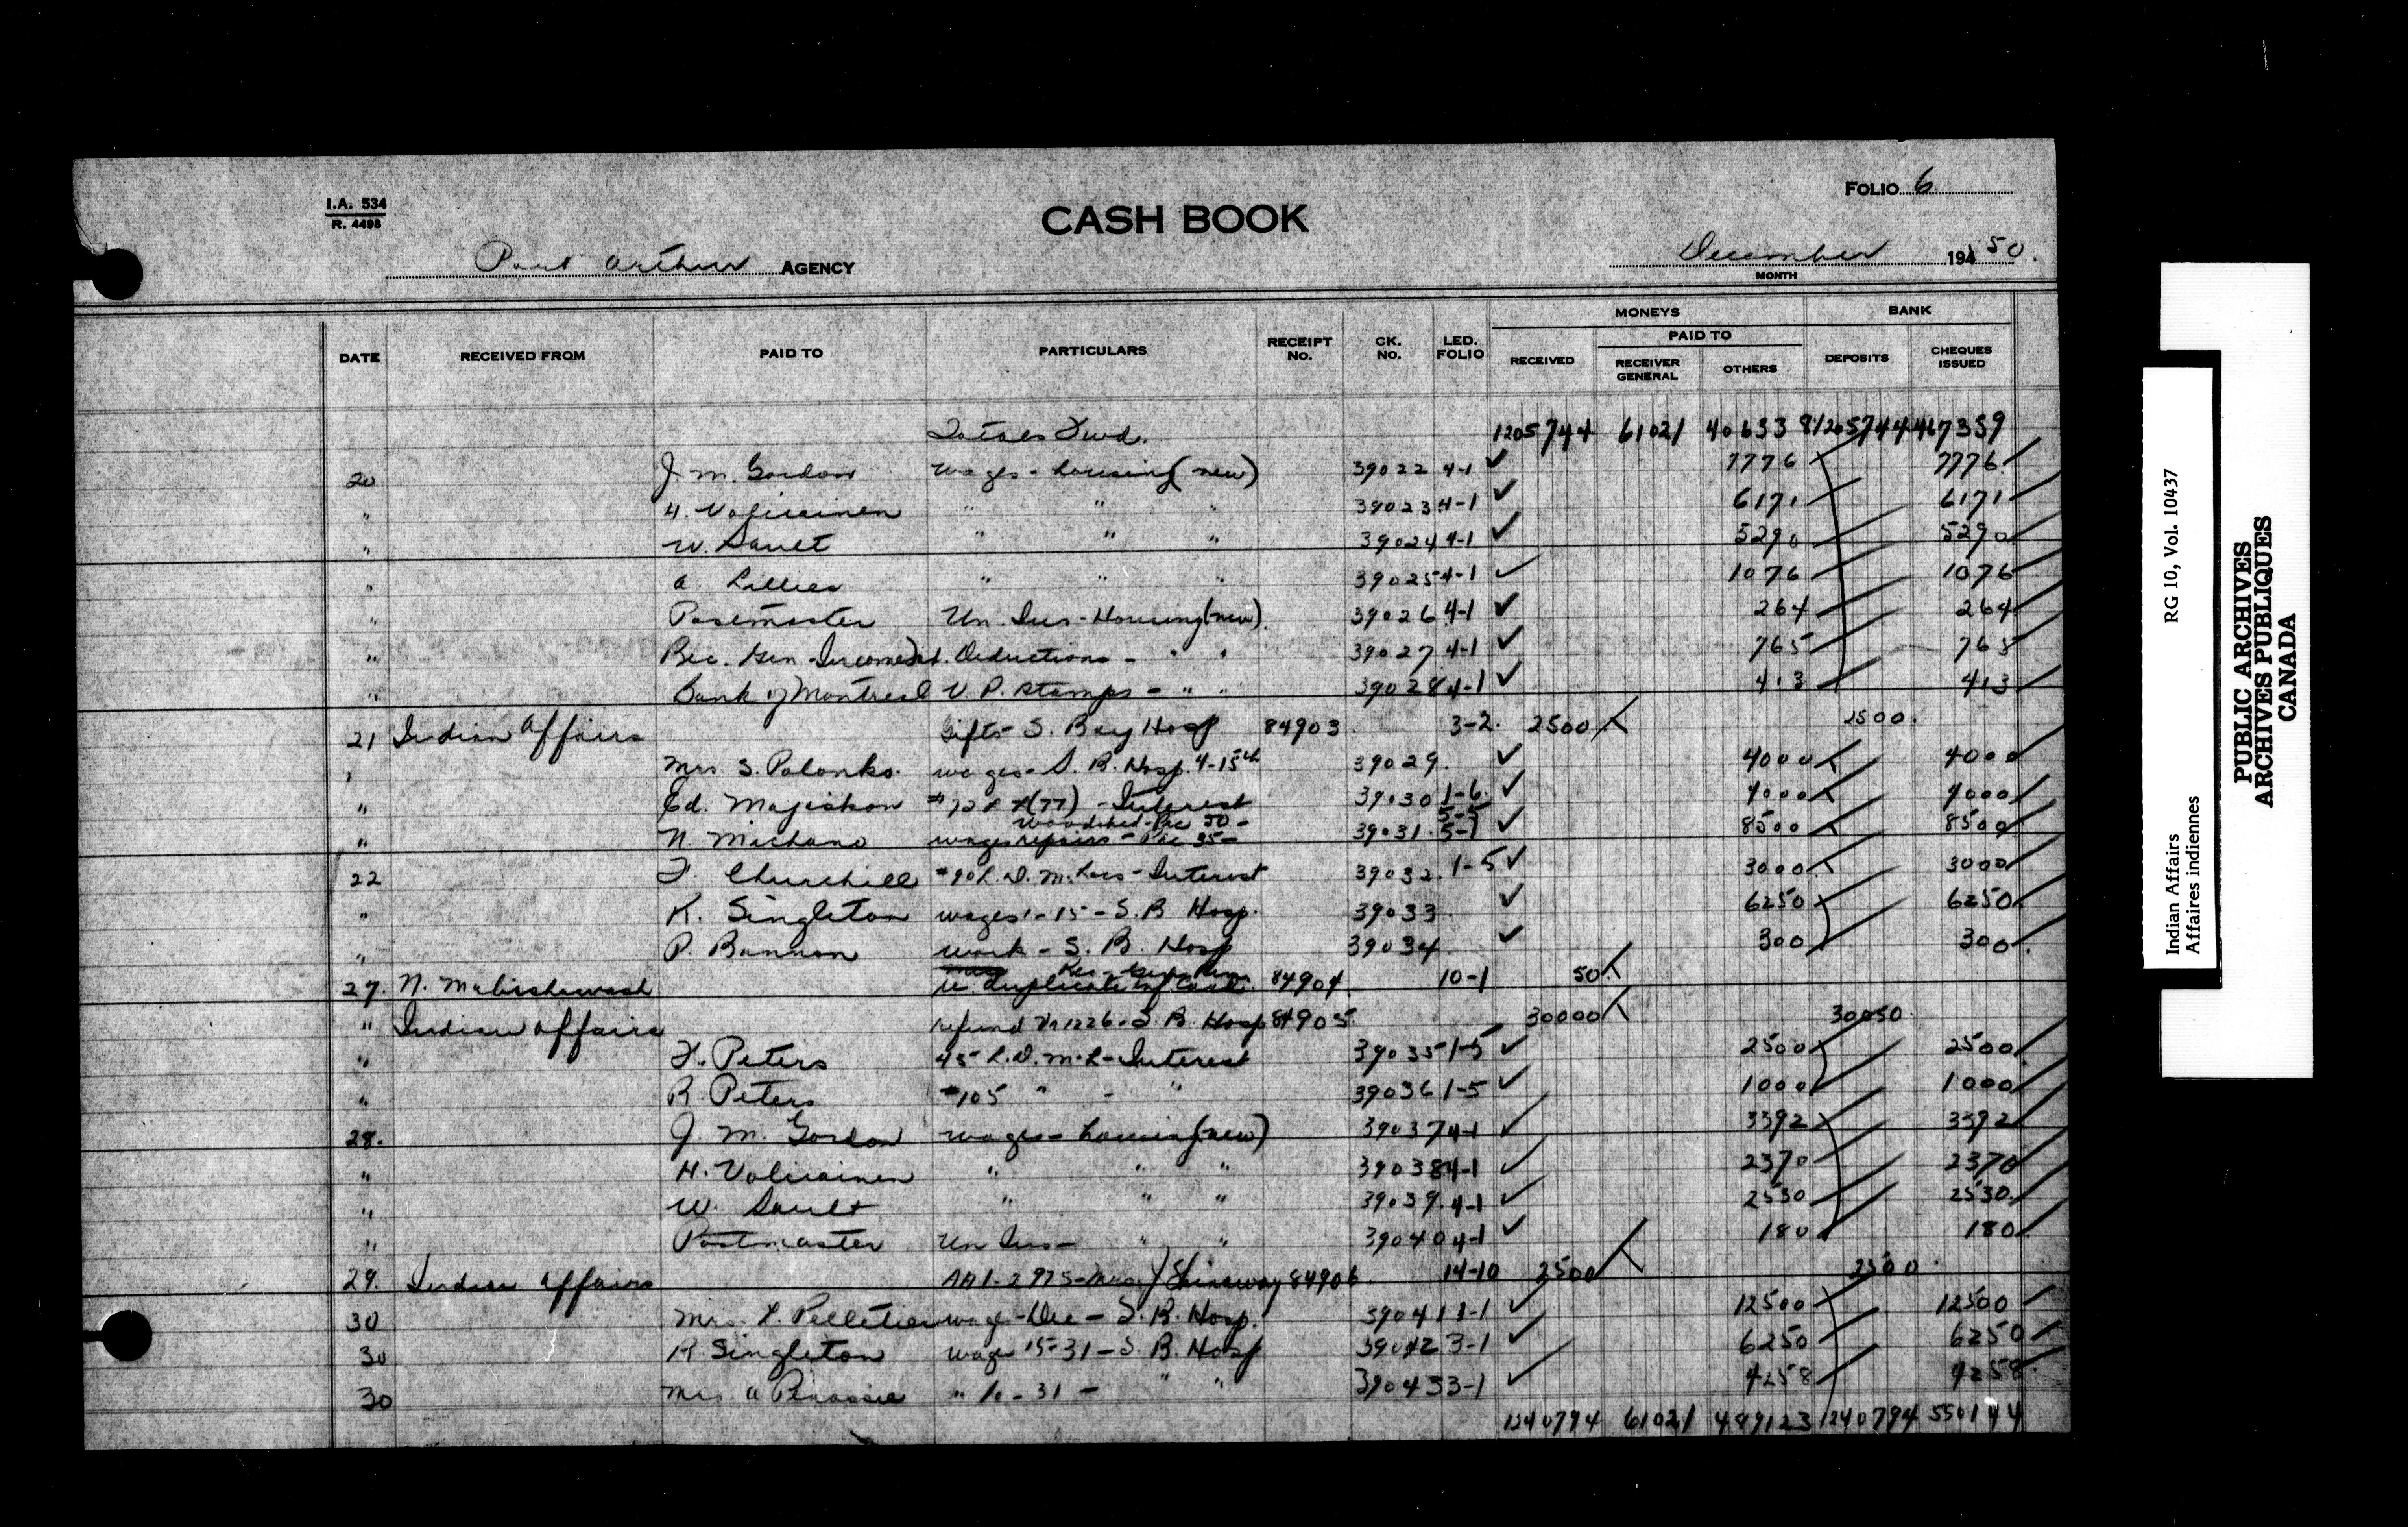 I.A. 534
R. 4498
CASH BOOK
FOLIO 6
Port Arthur AGENCY
December 194 50.
MONTH
DATE RECEIVED FROM PAID TO PARTICULARS RECEIPT No. CK. No. LED. FOLIO MONEYS RECEIVED PAID TO RECEIVER GENERAL OTHERS BANK DEPOSITS CHEQUES ISSUED
Totals Fwd. 1205744 61021 406338 1205744 467359
20 J. M. Gordon wages - housing (new) 39022 4-1 ✓ 7776 7776
" H. Valirainen " " " 39023 4-1 ✓ 6171 6171
" W. Sault " " " 39024 4-1 ✓ 5290 5290
" A. Lillies " " " 39025 4-1 ✓ 1076 1076
" Postmaster Un. Ins - Housing (new). 39026 4-1 ✓ 264 264
" Rec. Gen - Income Deductions - " " 39027 4-1 ✓ 765 765
" Bank of Montreal V. P. Stamps - " " 39028 4-1 ✓ 413 413
21 Indian Affairs Gifts - S. Bay Hosp 84903 3-2. 2500 2500.
" Mrs. S. Polonko. wages - S. B. Hosp. 4-15th 39029. ✓ 4000 4000
" Ed. Majiskon (77) - Interest 39030 1-6. ✓ 4000 4000
woodshed - Pac 50 - 5-5
" N. Michano wages repairs - Pic 35 - 39031. 5-1 ✓ 8500 8500
22 F. Churchill #90 L. D. M. - Interest 39032. 1-5 ✓ 3000 3000
" R. Singleton wages 1-15 - S. B Hosp. 39033 ✓ 6250 6250
" P. Bannon work - S. B. Hosp 39034 ✓ 300 300
27. N. duplicate 84904. 10-1 50
" Indian Affairs refund 1226 - S. B. Hosp 84905. 30000 30050
" F. Peters 45 - L. D. M. L - Interest 39035 1-5 ✓ 2500 2500
" R. Peters #105 " - " 39036 1-5 ✓ 1000 1000
28. J. M. Gordon wages - housing (new) 39037 4-1 ✓ 3392 3392
" H. Valirainen " " " 39038 4-1 ✓ 2370 2370
" W. Sault " " " 39039. 4-1 ✓ 2530 2530
" Postmaster Un Ins - " " 39040 4-1 ✓ 180 180
29. Indian Affairs 2975 - Mrs. J 84906 14-10 2500 2500
30 Mrs. L. Pelletier wages - Dec - S. B. Hosp. 39041 3-1 ✓ 12500 12500
30 R. Singleton wages 15-31 - S. B. Hosp 39042 3-1 ✓ 6250 6250
30 Mrs. A " - 31 - " " 39043 3-1 ✓ 4258 4258
1240794 61021 489123 1240794 550144
Indian Affairs RG 10, Vol. 10437
Affaires indiennes
PUBLIC ARCHIVES
ARCHIVES PUBLIQUES
CANADA